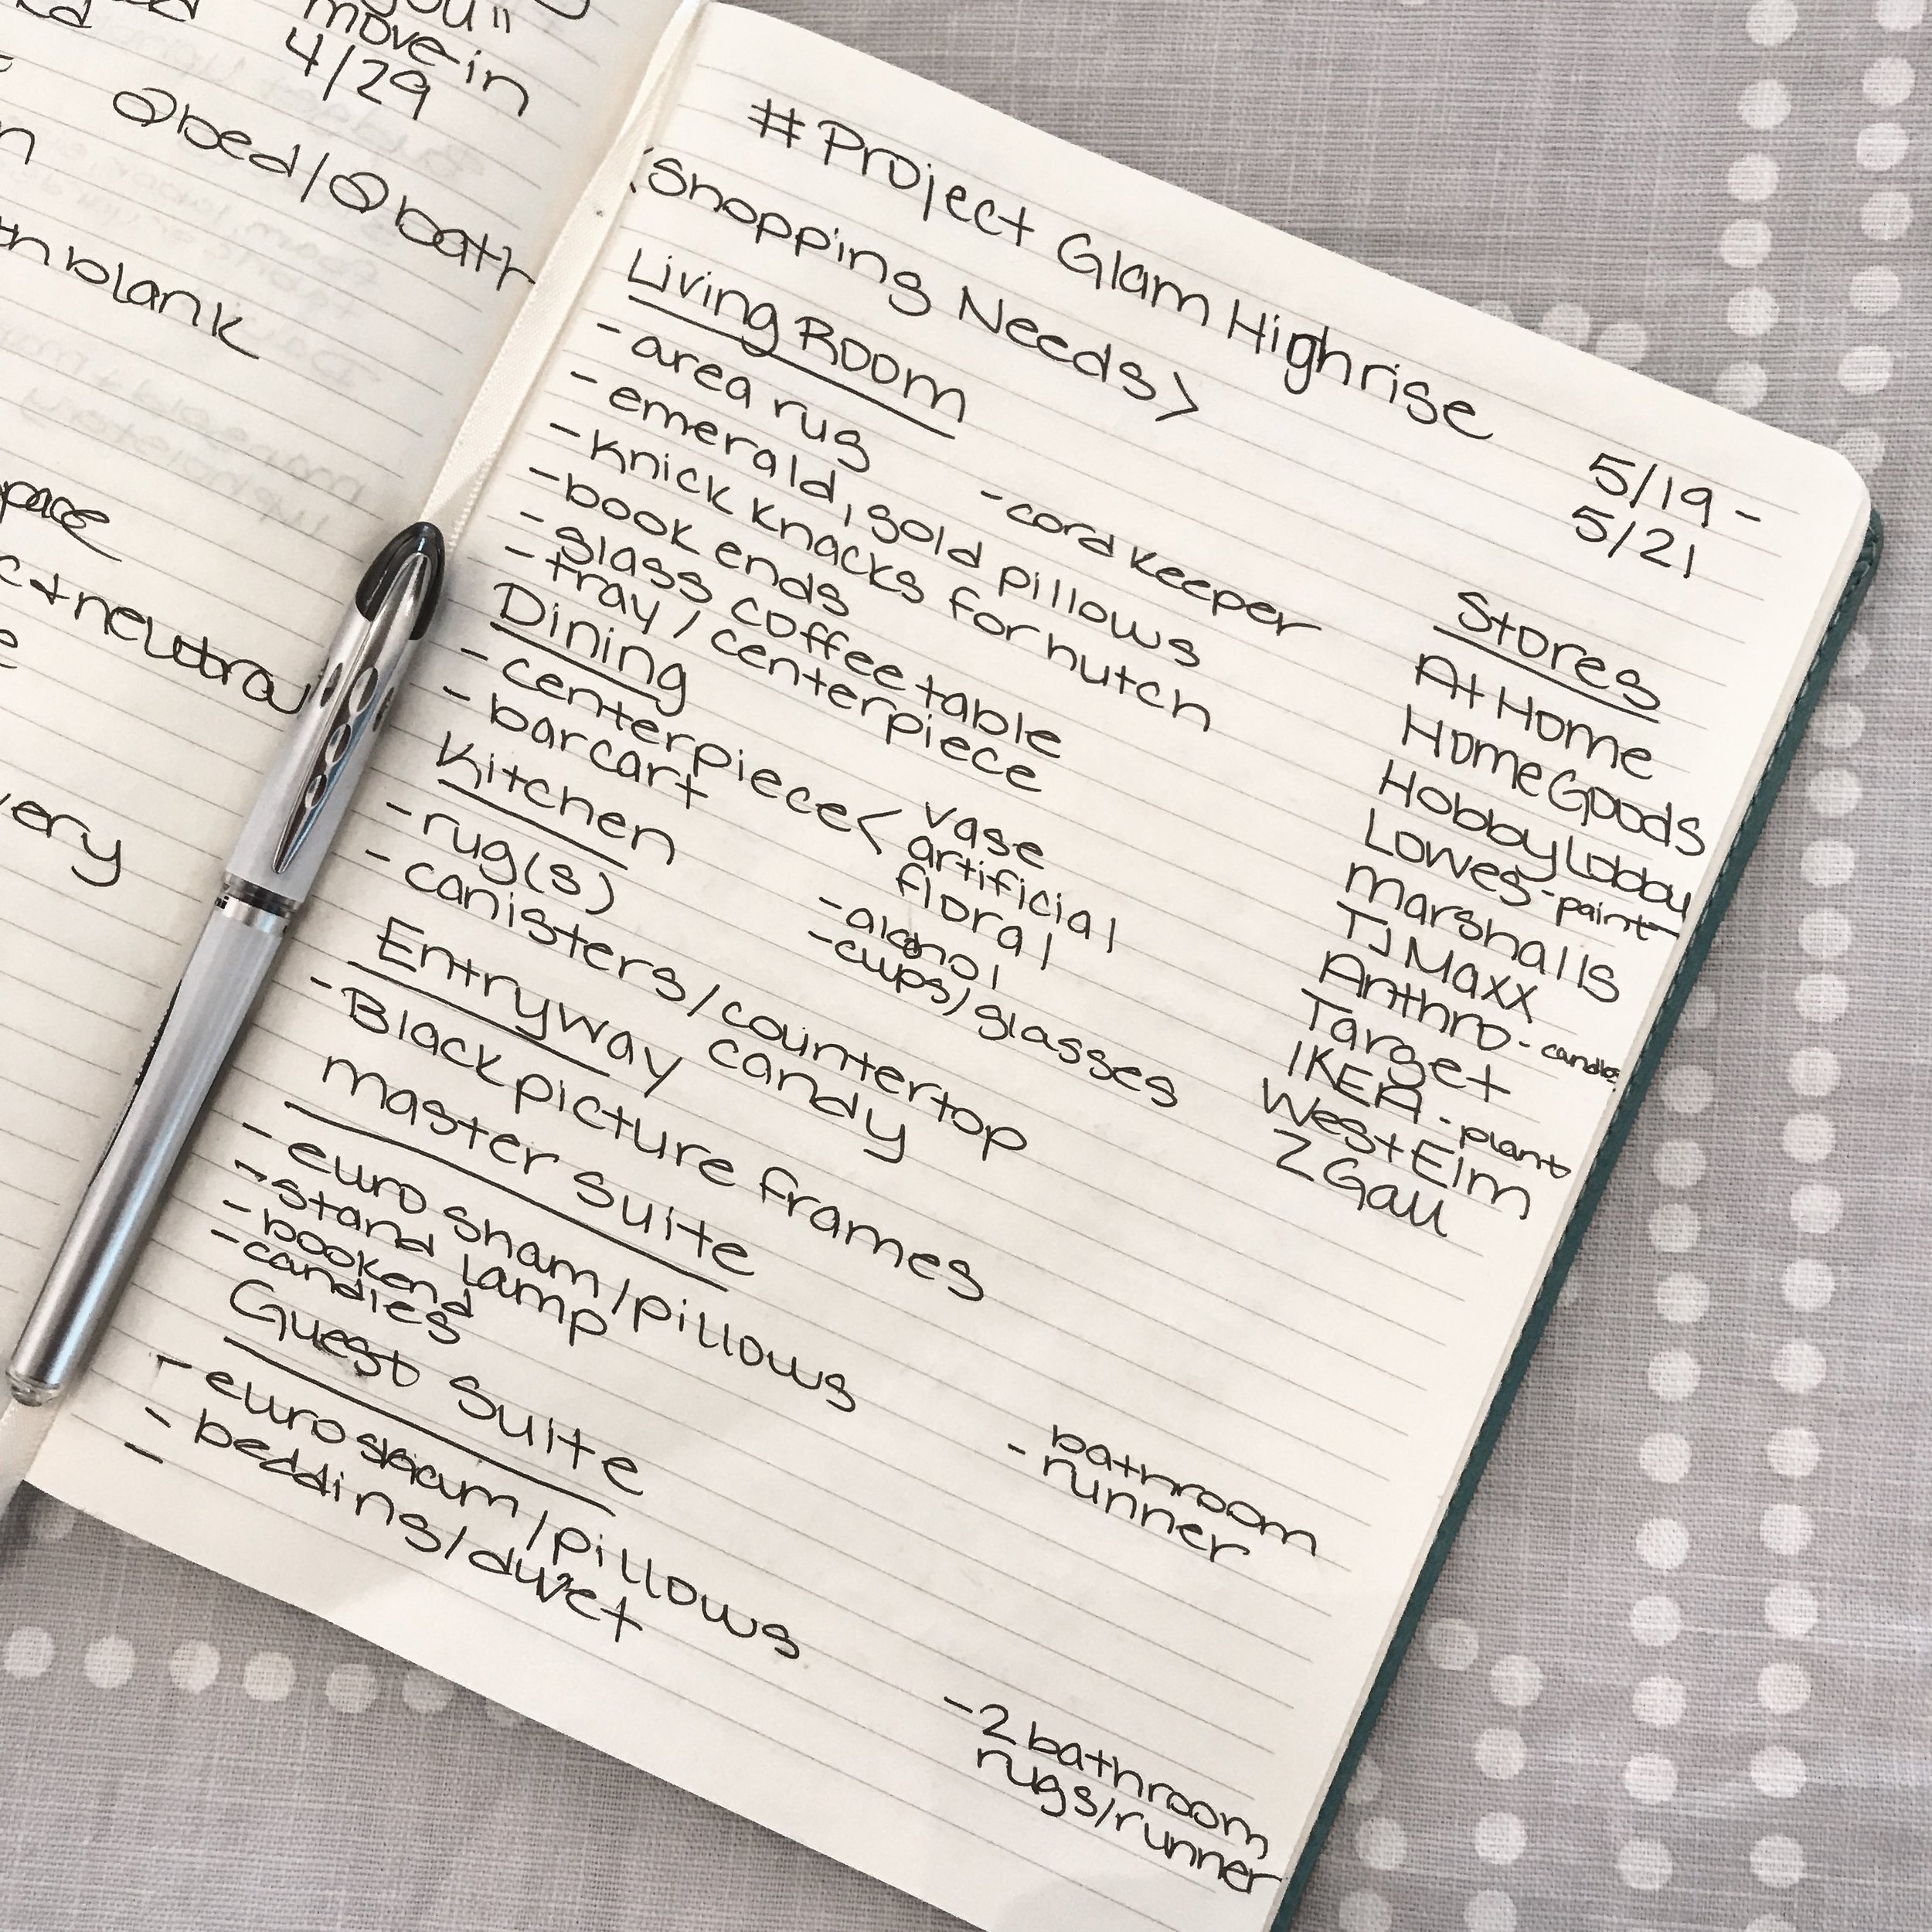 you"
move-in
4/29
2bed/2bath
blank
very
#Project Glam Highrise
<Shopping Needs>
5/19 -
5/21
Living Room
- area rug
- cord keeper
- emerald, gold pillows
- knick knacks for hutch
- book ends
- glass coffee table
- tray / centerpiece
Dining
- centerpiece < vase
artificial
floral
- bar cart
- alcohol
- cups/glasses
Kitchen
- rug(s)
- canisters/countertop
candy
Entryway
- Black picture frames
Master Suite
- euro sham/pillows
- stand lamp
- bookend
- candles
bathroom
- runner
Guest Suite
- euro sham/pillows
- bedding/duvet
-
- 2 bathroom
rugs/runner
Stores
At Home
HomeGoods
Hobby Lobby
Lowes - paint
Marshalls
TJ Maxx
Anthro - candles
Target
IKEA - plant
West Elm
Z Gall